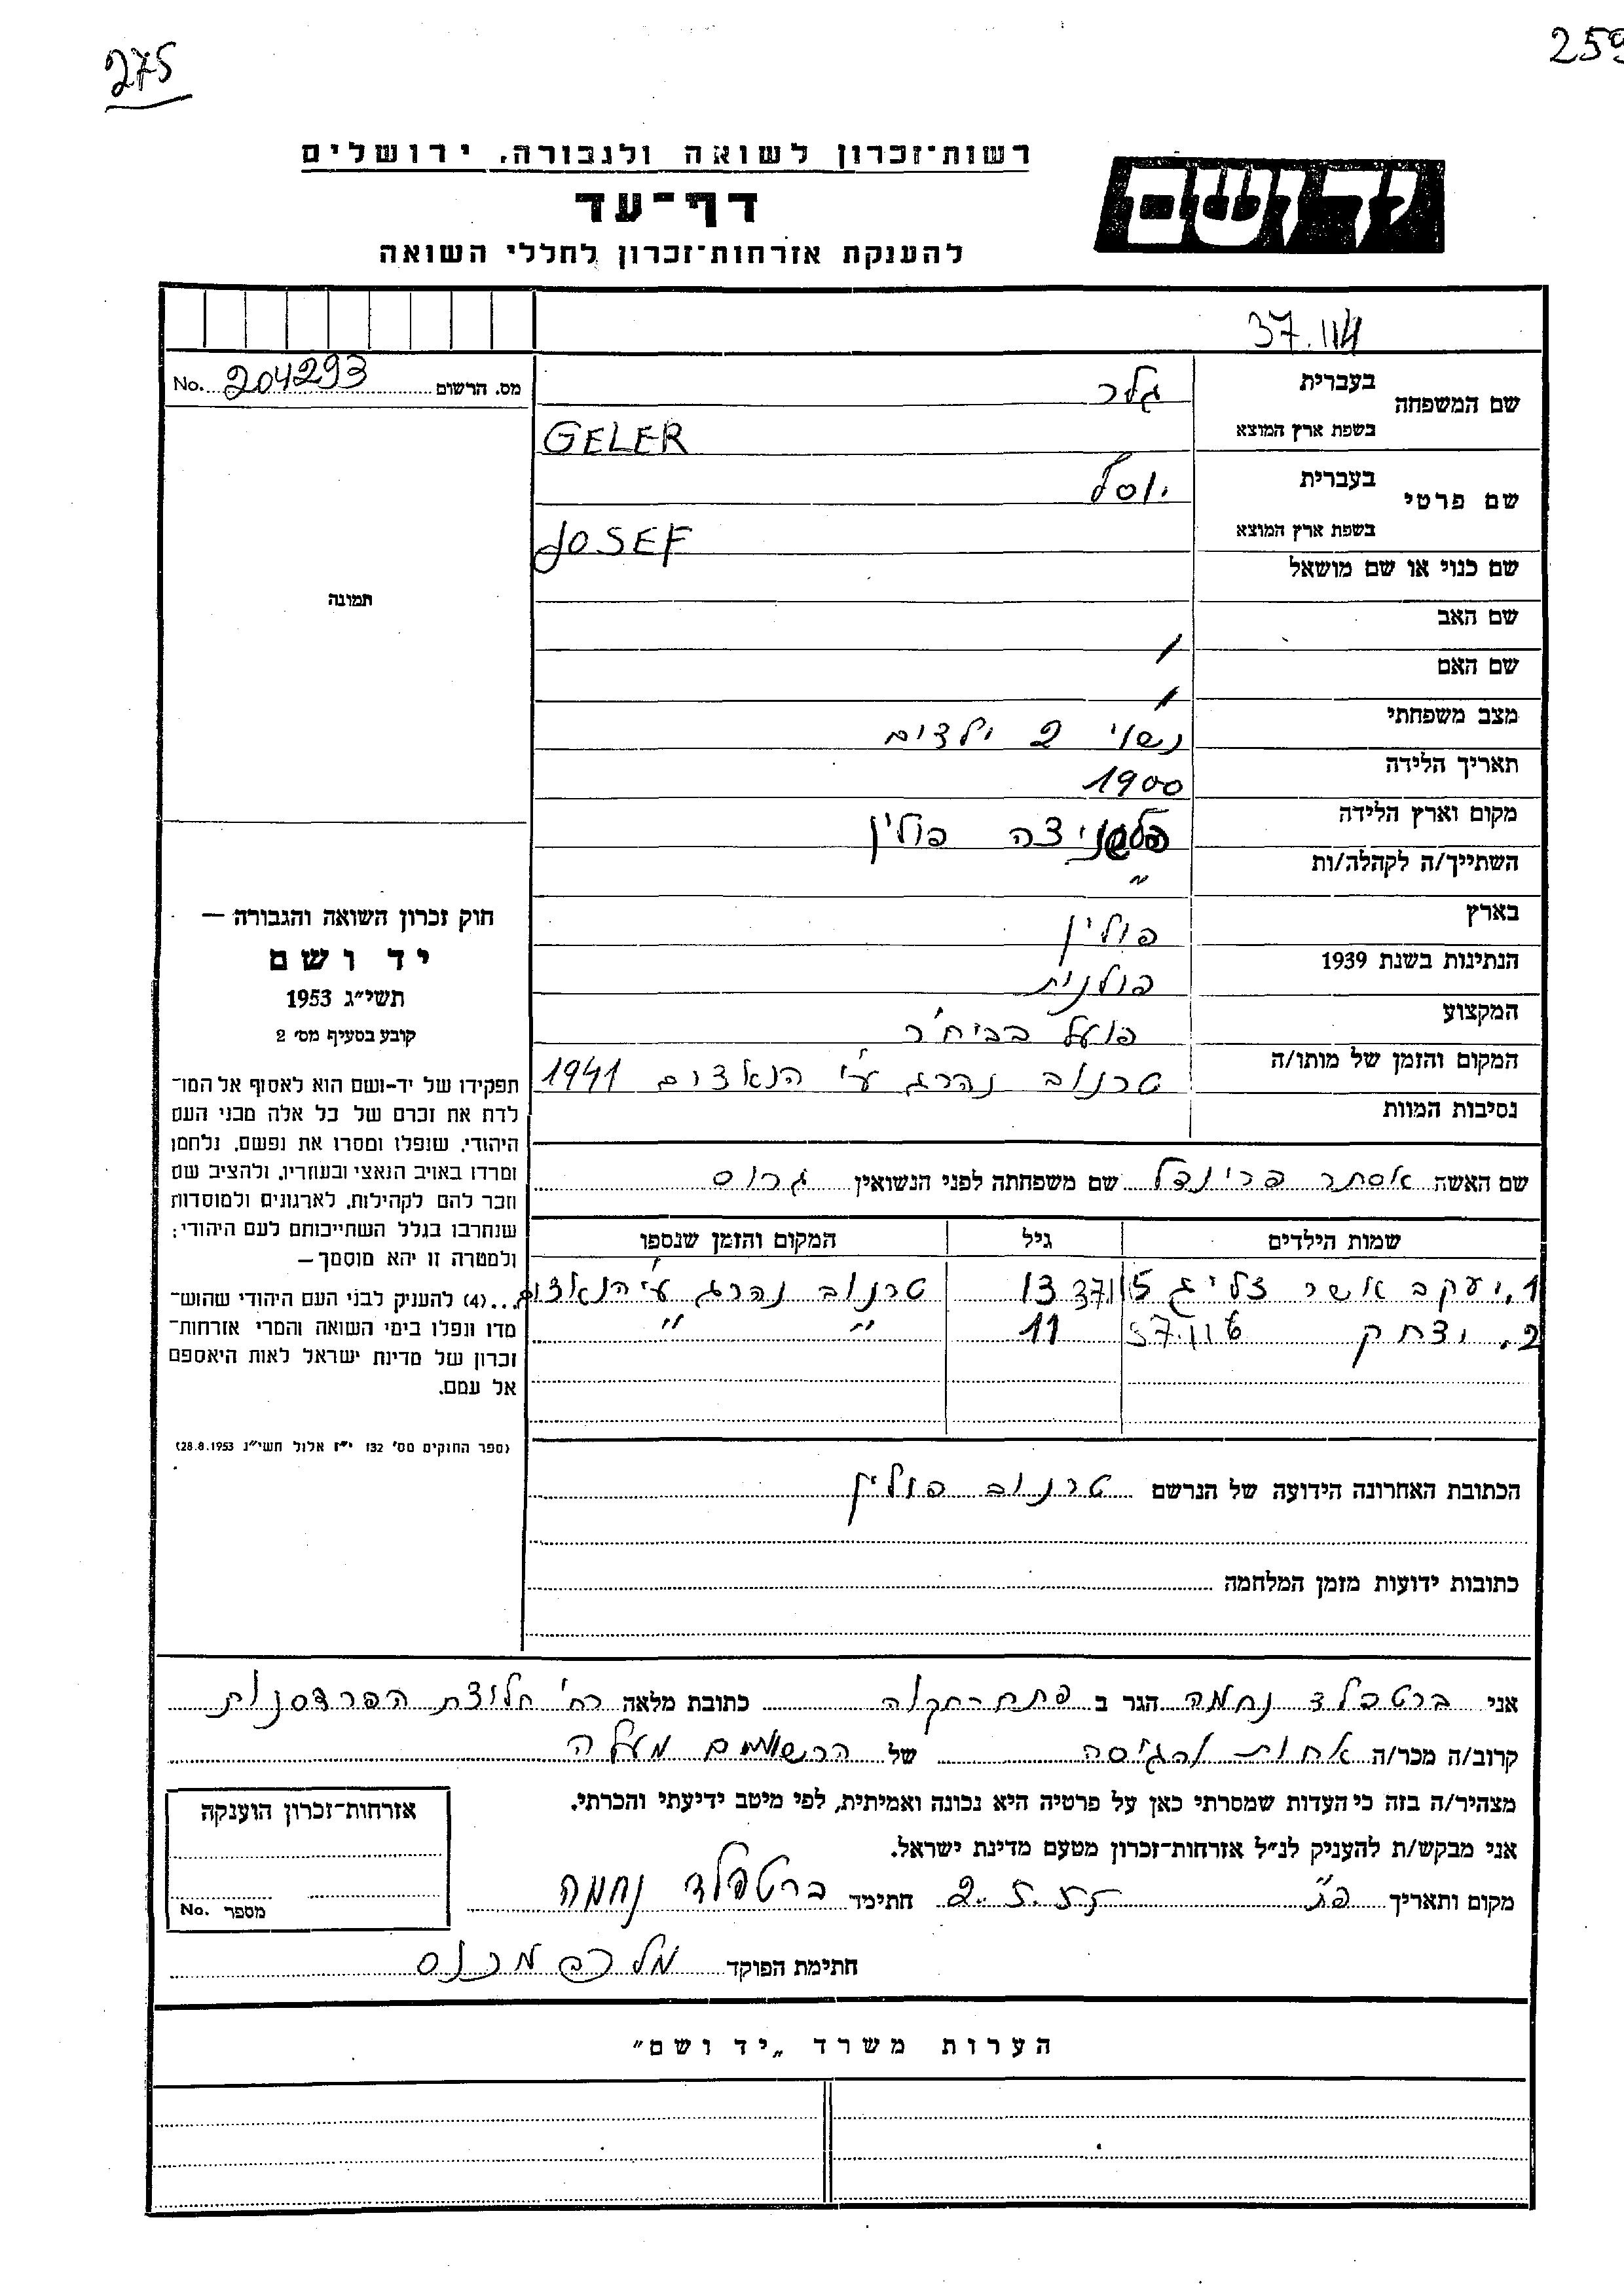 275
259
רשות־זכרון לשואה ולגבורה, ירושלים
יד ושם
דף־עד
להענקת אזרחות־זכרון לחללי השואה
37.114
No. 204293 מס. הרשום
שם המשפחה בעברית גלר
בשפת ארץ המוצא GELER
שם פרטי בעברית יוסל
בשפת ארץ המוצא JOSEF
תמונה
שם כנוי או שם מושאל
שם האב /
שם האם /
מצב משפחתי נשוי 2 ילדים
תאריך הלידה 1900
מקום וארץ הלידה פולין
השתייך/ה לקהלה/ות "
בארץ פולין
הנתינות בשנת 1939 פולנית
המקצוע פועל בביח'ר
המקום והזמן של מותו/ה טרנוב נהרג ע"י הנאצים 1941
נסיבות המוות
חוק זכרון השואה והגבורה —
יד ושם
תשי״ג 1953
קובע בסעיף מס׳ 2
תפקידו של יד-ושם הוא לאסוף אל המו־
לדת את זכרם של כל אלה מבני העם
היהודי, שנפלו ומסרו את נפשם, נלחמו
ומרדו באויב הנאצי ובעוזריו, ולהציב שם
וזכר להם לקהילות, לארגונים ולמוסדות
שנחרבו בגלל השתייכותם לעם היהודי;
ולמטרה זו יהא מוסמך —
...(4) להעניק לבני העם היהודי שהוש־
מדו ונפלו בימי השואה והמרי אזרחות־
זכרון של מדינת ישראל לאות היאספם
אל עמם.
(ספר החוקים מס׳ 132 י״ז אלול תשי״ג 28.8.1953)
שם האשה אסתר פרינדל שם משפחתה לפני הנשואין גרוס
שמות הילדים גיל המקום והזמן שנספו
1. יעקב אשר זליג 37115 13 טרנוב נהרג ע"י הנאצים
2. יצחק 37.116 11 " "
הכתובת האחרונה הידועה של הנרשם טרנוב פולין
כתובות ידועות מזמן המלחמה
אני ברטפלד נחמה הגר ב פתח תקוה כתובת מלאה רח' חלוצת הפרדסנות
קרוב/ה מכר/ה אחות וגיסה של הרשומים מעלה
מצהיר/ה בזה כי העדות שמסרתי כאן על פרטיה היא נכונה ואמיתית, לפי מיטב ידיעתי והכרתי.
אני מבקש/ת להעניק לנ״ל אזרחות־זכרון מטעם מדינת ישראל.
מקום ותאריך פ"ת 2.5.55 חתימה ברטפלד נחמה
חתימת הפוקד מרכוס
אזרחות־זכרון הוענקה
No. מספר
הערות משרד „יד ושם״